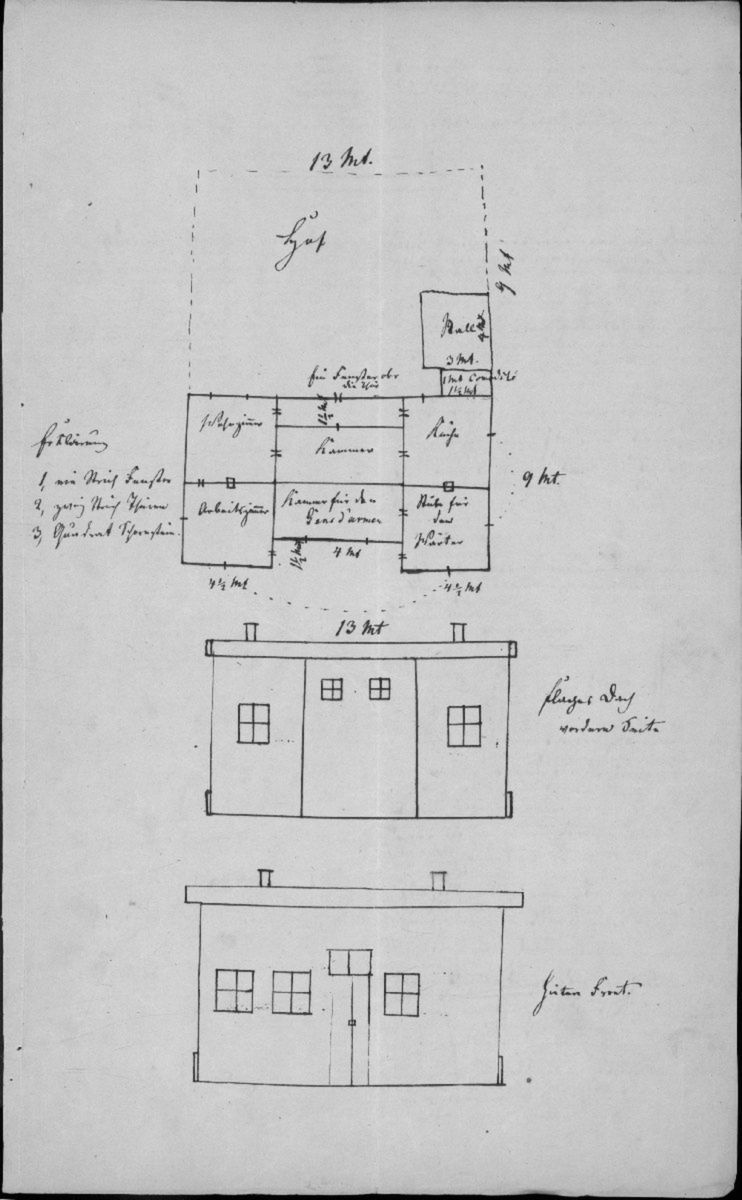 13 Mt.
Hof
9 Mt
Stall
4 Mt
3 Mt.
1 Mt
1½ Mt
Ein Fenster ober
die Thür
1½ Mt
Wohnzimmer
Küche
Kammer
Erklärung
1, ein Strich Fenster
2, zwei Strich Thüren
3, Quadrat Schornstein.
9 Mt.
Arbeitszimmer
Kammer für den
Gensd'armen
Stube für
den
Wärter
1½ Mt
4 Mt
4½ Mt
4½ Mt
13 Mt
flaches Dach
vordere Seite
Hintere Front.